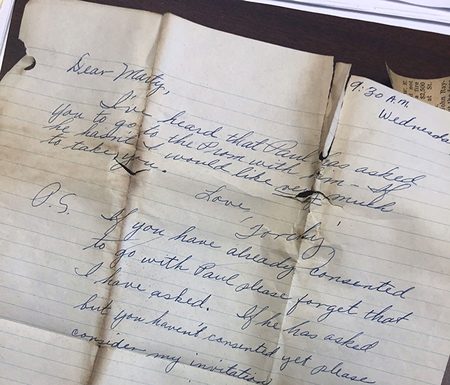 9:30 A.M.
Wednesda
Dear Marty,
I've heard that Paul has asked
you to go to the Prom with him – If
he hasn't I would like very much
to take you.
Love,
Torchy
P.S. If you have already consented
to go with Paul please forget that
I have asked. If he has asked
but you haven't consented yet please
consider my invitation